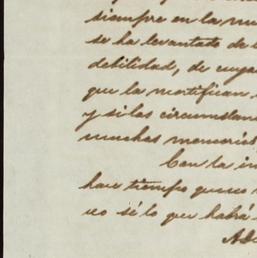 siempre en la mu
se ha levantado de
debilidad, de cuya
que la mortifican
y si las circunstan
muchas memorias
Con la in
hace tiempo que no
no sé lo que habrá
Adi